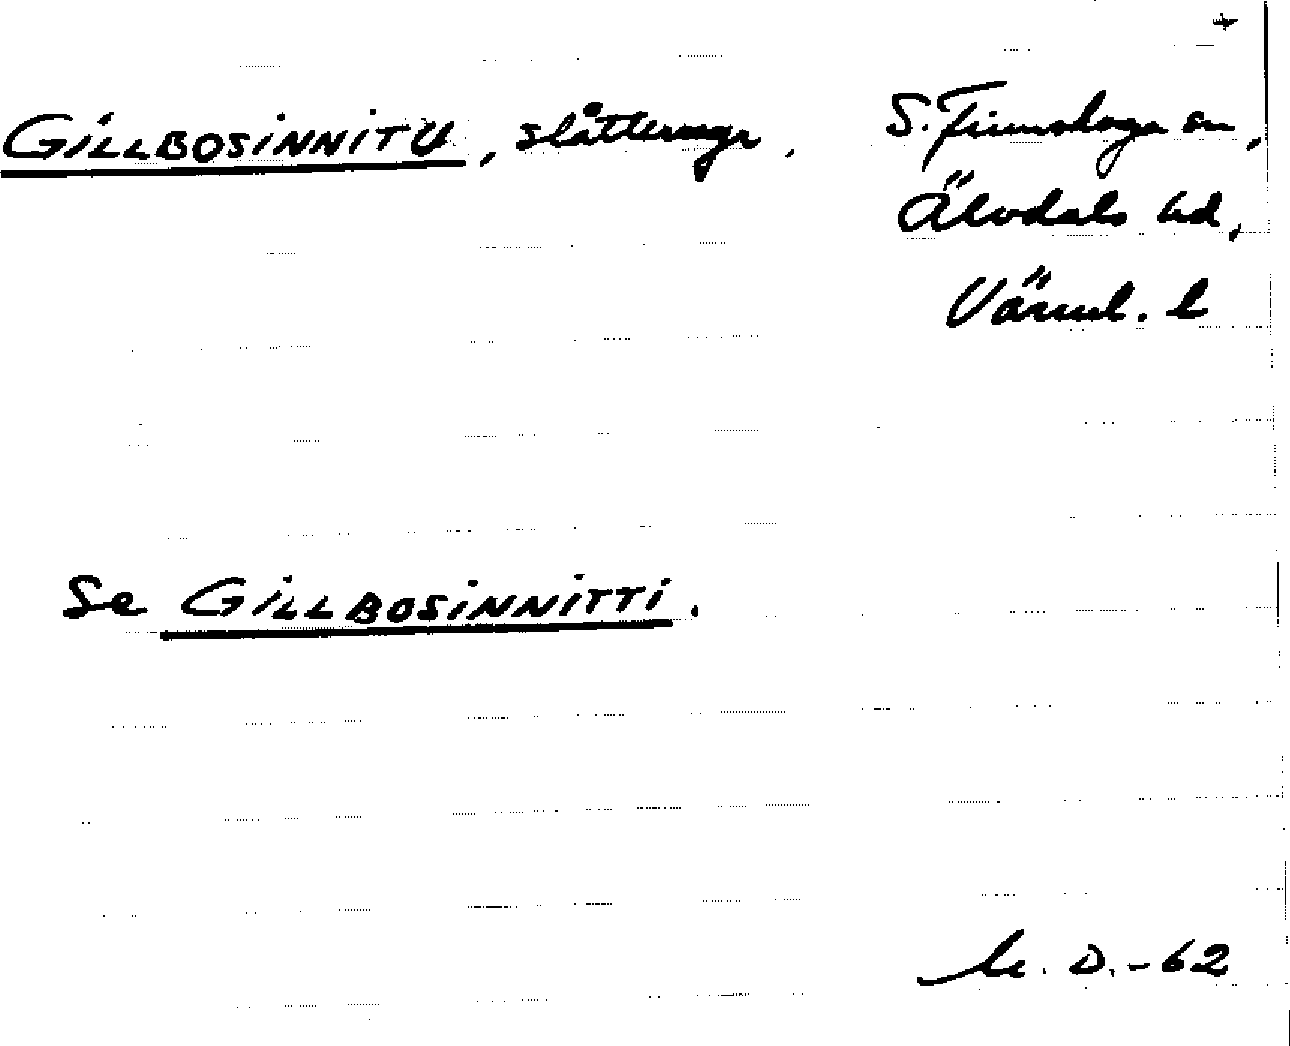 GILLBOSINNITU, slåtterängr, S. Finnskoga sn,
Älvdals hd,
Värml. l
Se GILLBOSINNITTI.
M. D. -62